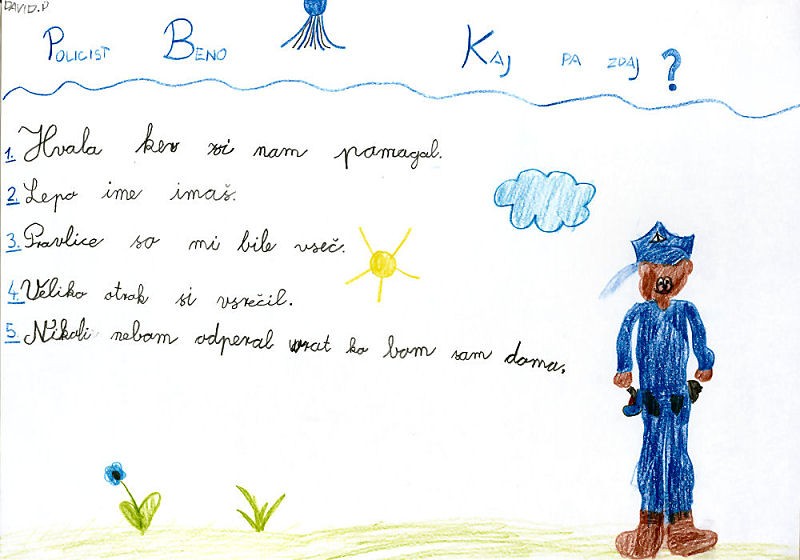 DAVID.P
POLICIST BENO KAJ PA ZDAJ?
1. Hvala ker si nam pomagal.
2. Lepo ime imaš.
3. Pravlice so mi bile všeč.
4. Veliko otrok si vsrečil.
5. Nikoli nebom odperal vrat ko bom sam doma.